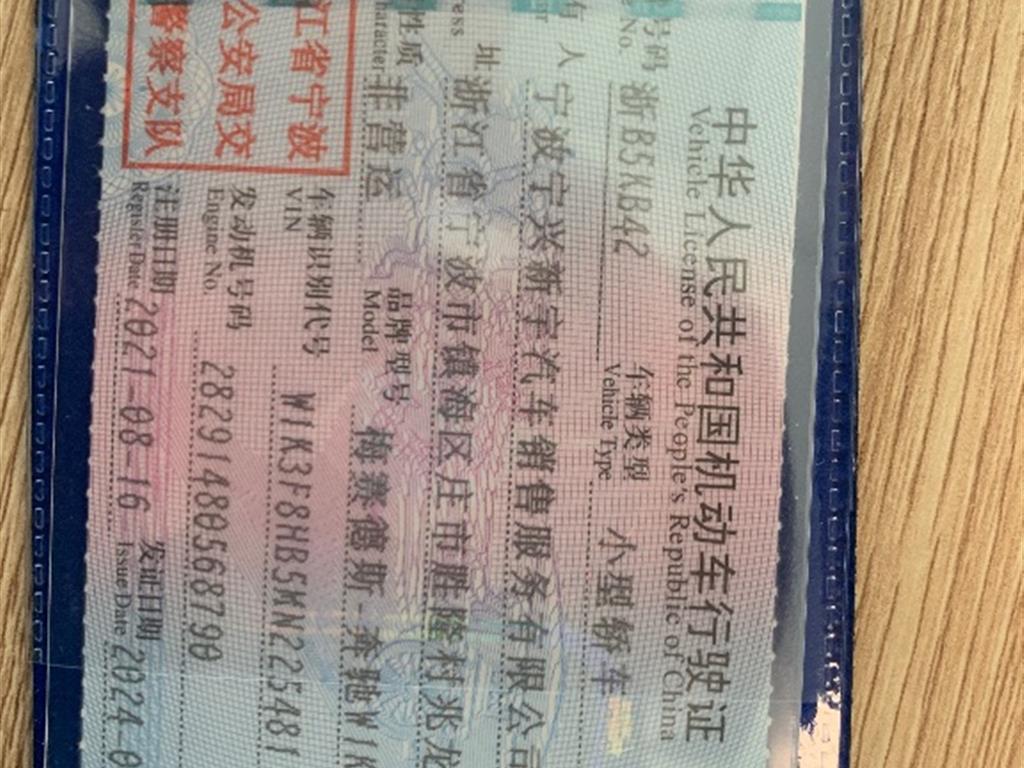 中华人民共和国机动车行驶证
Vehicle License of the People's Republic of China
号码 浙B5KB42 车辆类型 小型轿车
No. Vehicle Type
有 人 宁波宁兴新宇汽车销售服务有限公司
址 浙江省宁波市镇海区庄市胜隆村兆龙
性质 非营运 品牌型号 梅赛德斯-奔驰W1K
Character Model
江省宁波
公安局交
警察支队
车辆识别代号 W1K3F8HB5MN225481
VIN
发动机号码 28291480568790
Engine No.
注册日期 2021-08-16 发证日期 2024-0
Register Date Issue Date